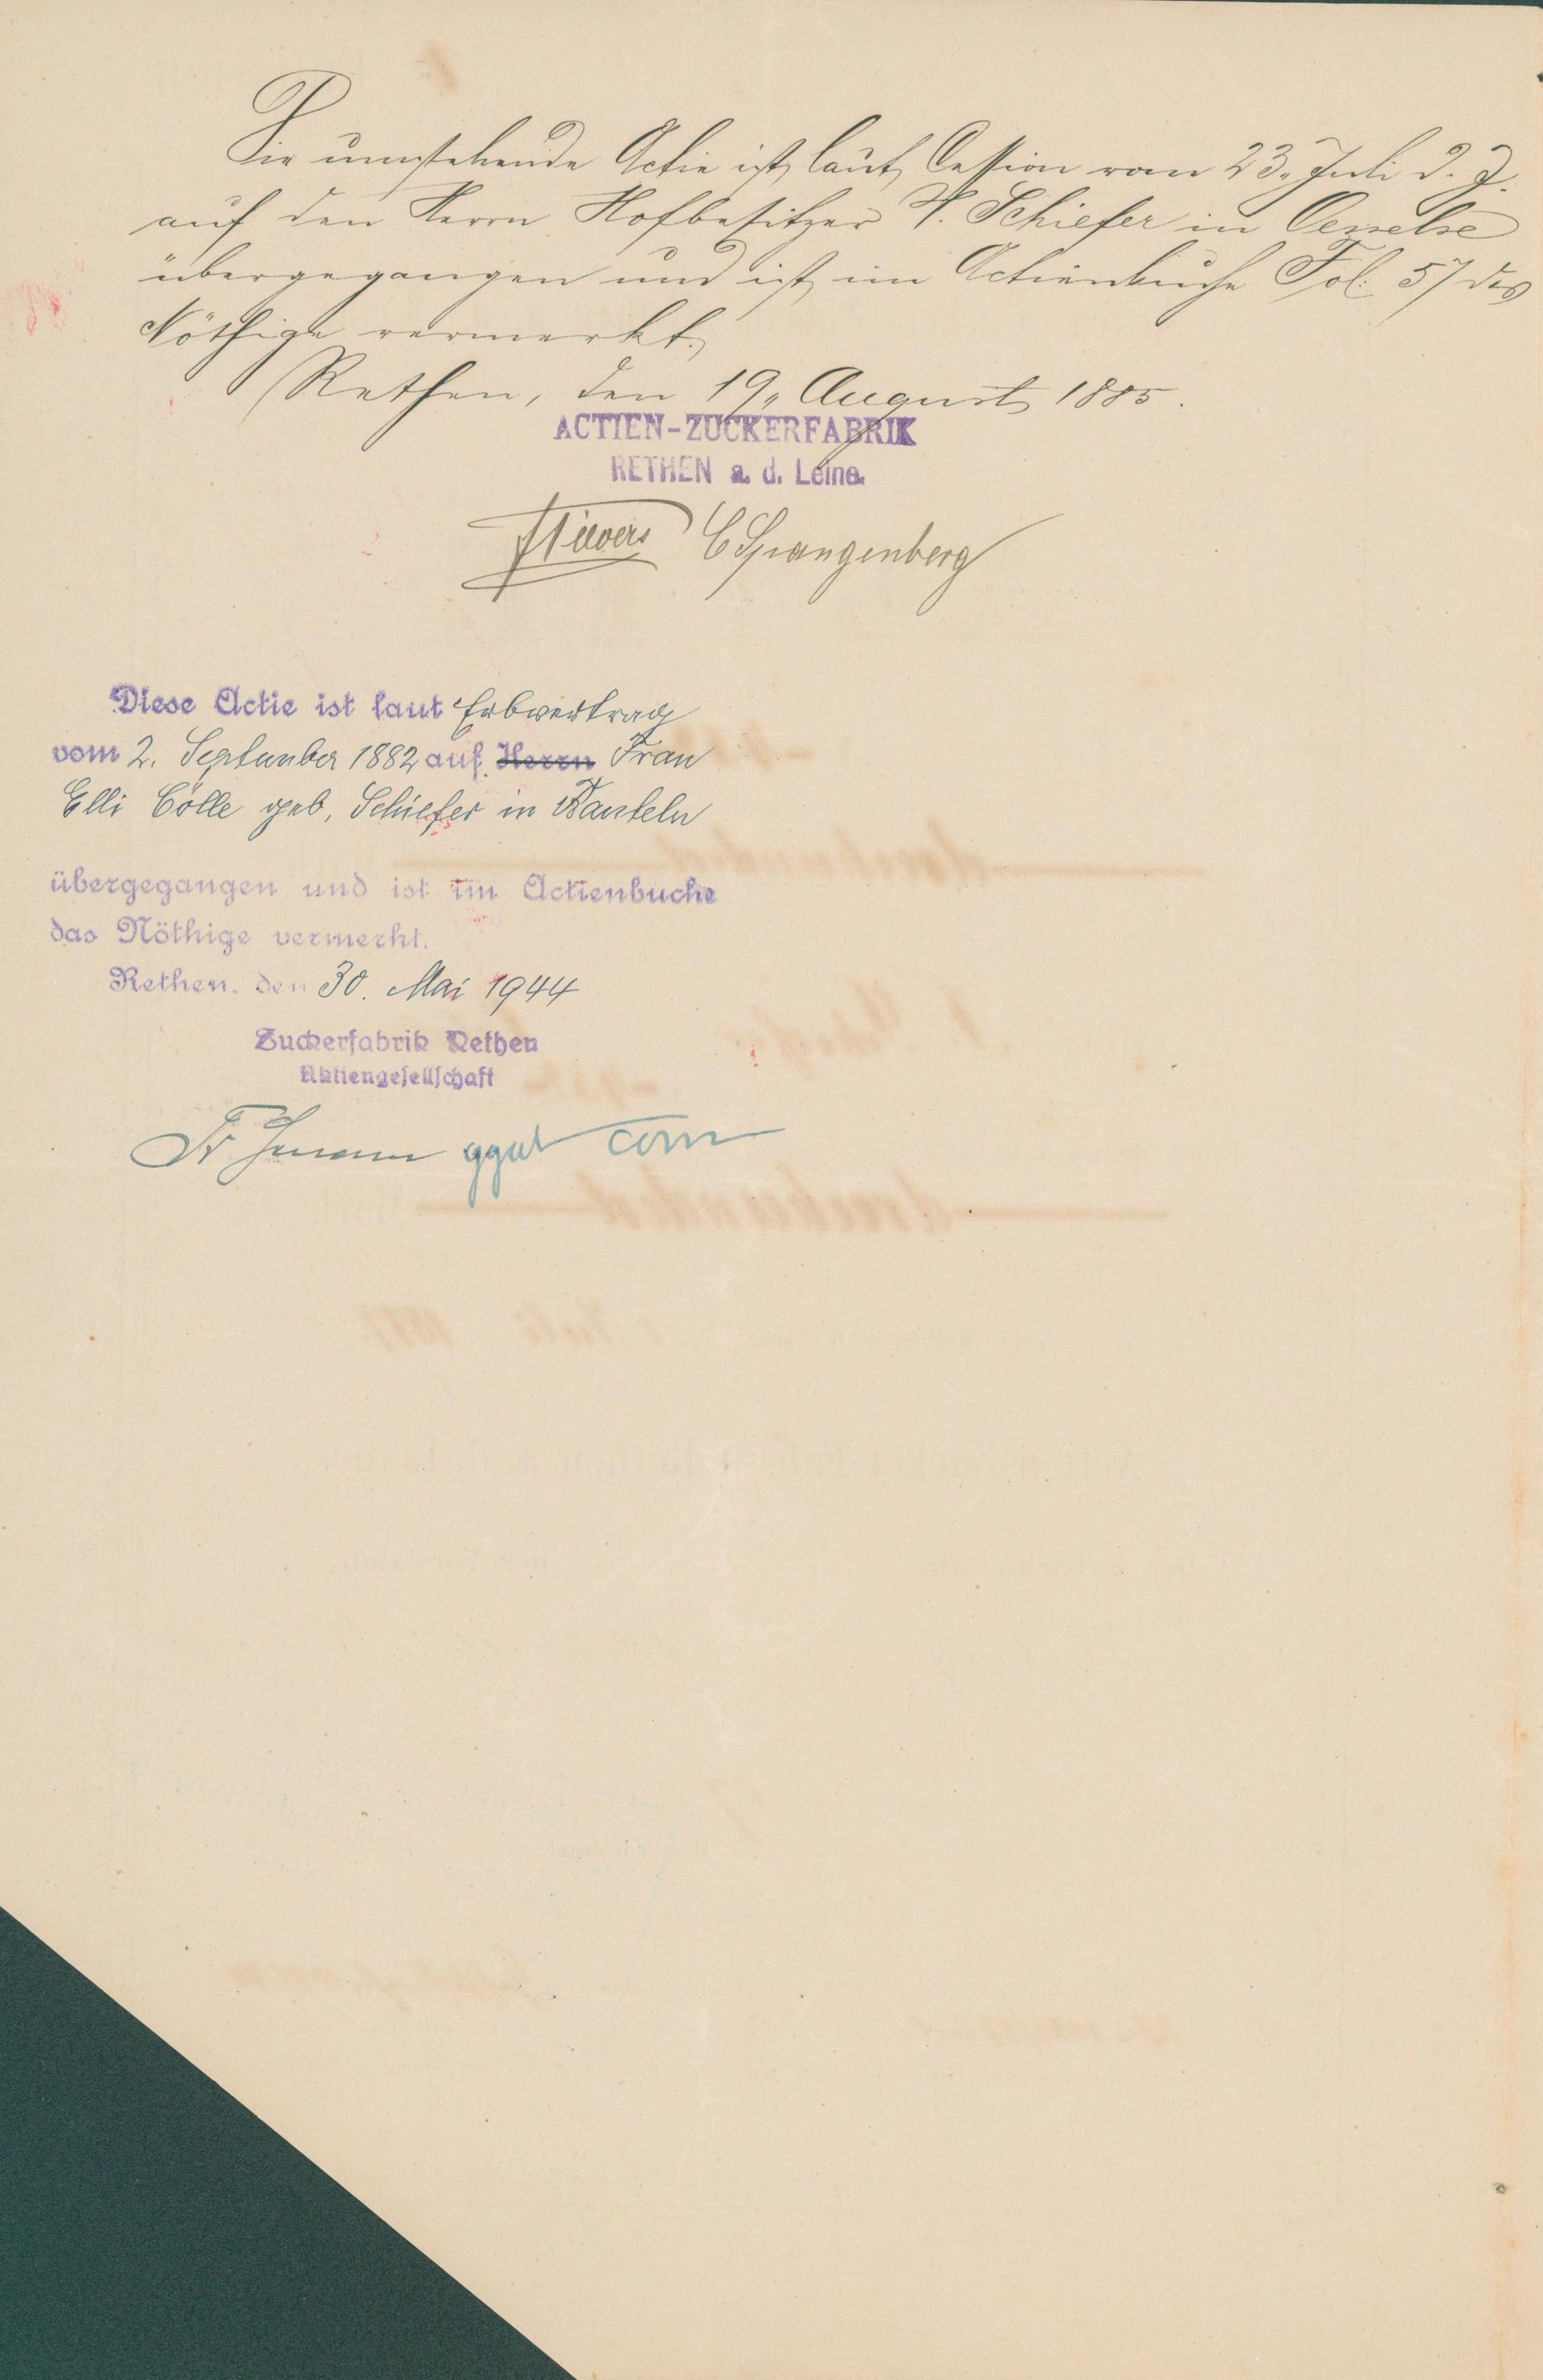 Die umstehende Actie ist laut Cession vom 23. Juli d. J.
auf den Herrn Hofbesitzer H. Schiefer in Oesselse
übergegangen und ist im Actienbuche Fol: 57 das
Nöthige vermerkt.
Rethen, den 19. August 1885.
ACTIEN-ZUCKERFABRIK
RETHEN a. d. Leine.
C Spangenberg
Diese Actie ist laut Erbvertrag
vom 2. September 1882 auf Herrn Frau
Elli Cölle geb. Schiefer in Banteln
übergegangen und ist im Actienbuche
das Nöthige vermerkt.
Rethen, den 30. Mai 1944
Zuckerfabrik Rethen
Aktiengesellschaft